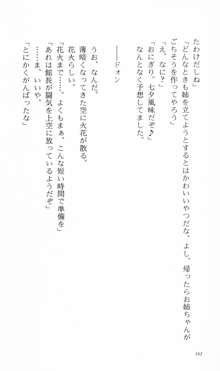 たわけだしね」
「どんなときも姉を立てようとするとはかわいいやつだな、よし、帰ったらお姉ちゃんが
ごちそうを作ってやろう」
「え、なに?」
「おにぎり、七夕風味だぞ♪」
なんとなく予想してました。
――ドォン
うお、なんだ。
薄暗くなってきた空に火花が散る。
花火らしい。
「花火まで……。よくもまぁ、こんな短い時間で準備を」
「あれは館長が闘気を上空に放っているようだぞ」
「……まぁ、いいや」
「とにかくがんばったな」
162